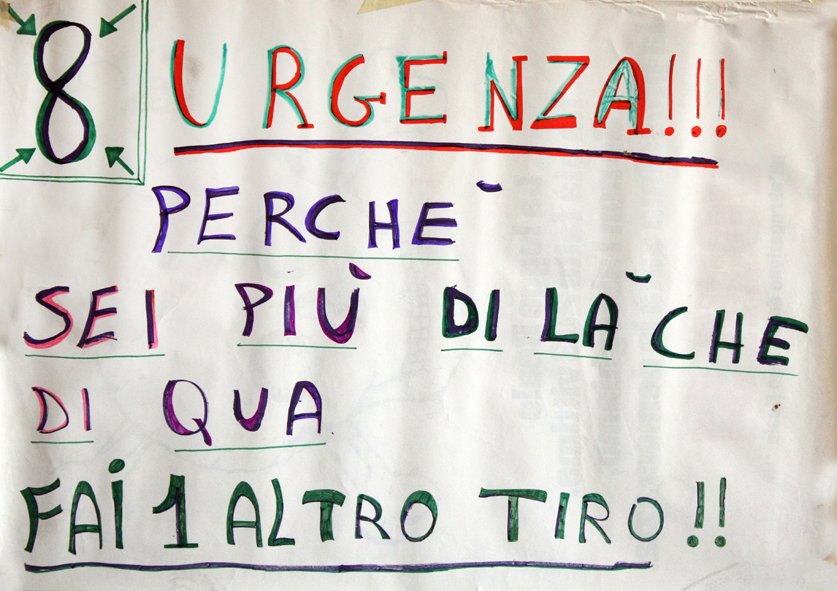 8 URGENZA!!!
PERCHÈ
SEI PIÙ DI LÀ CHE
DI QUA
FAi 1 ALTRO TIRO!!